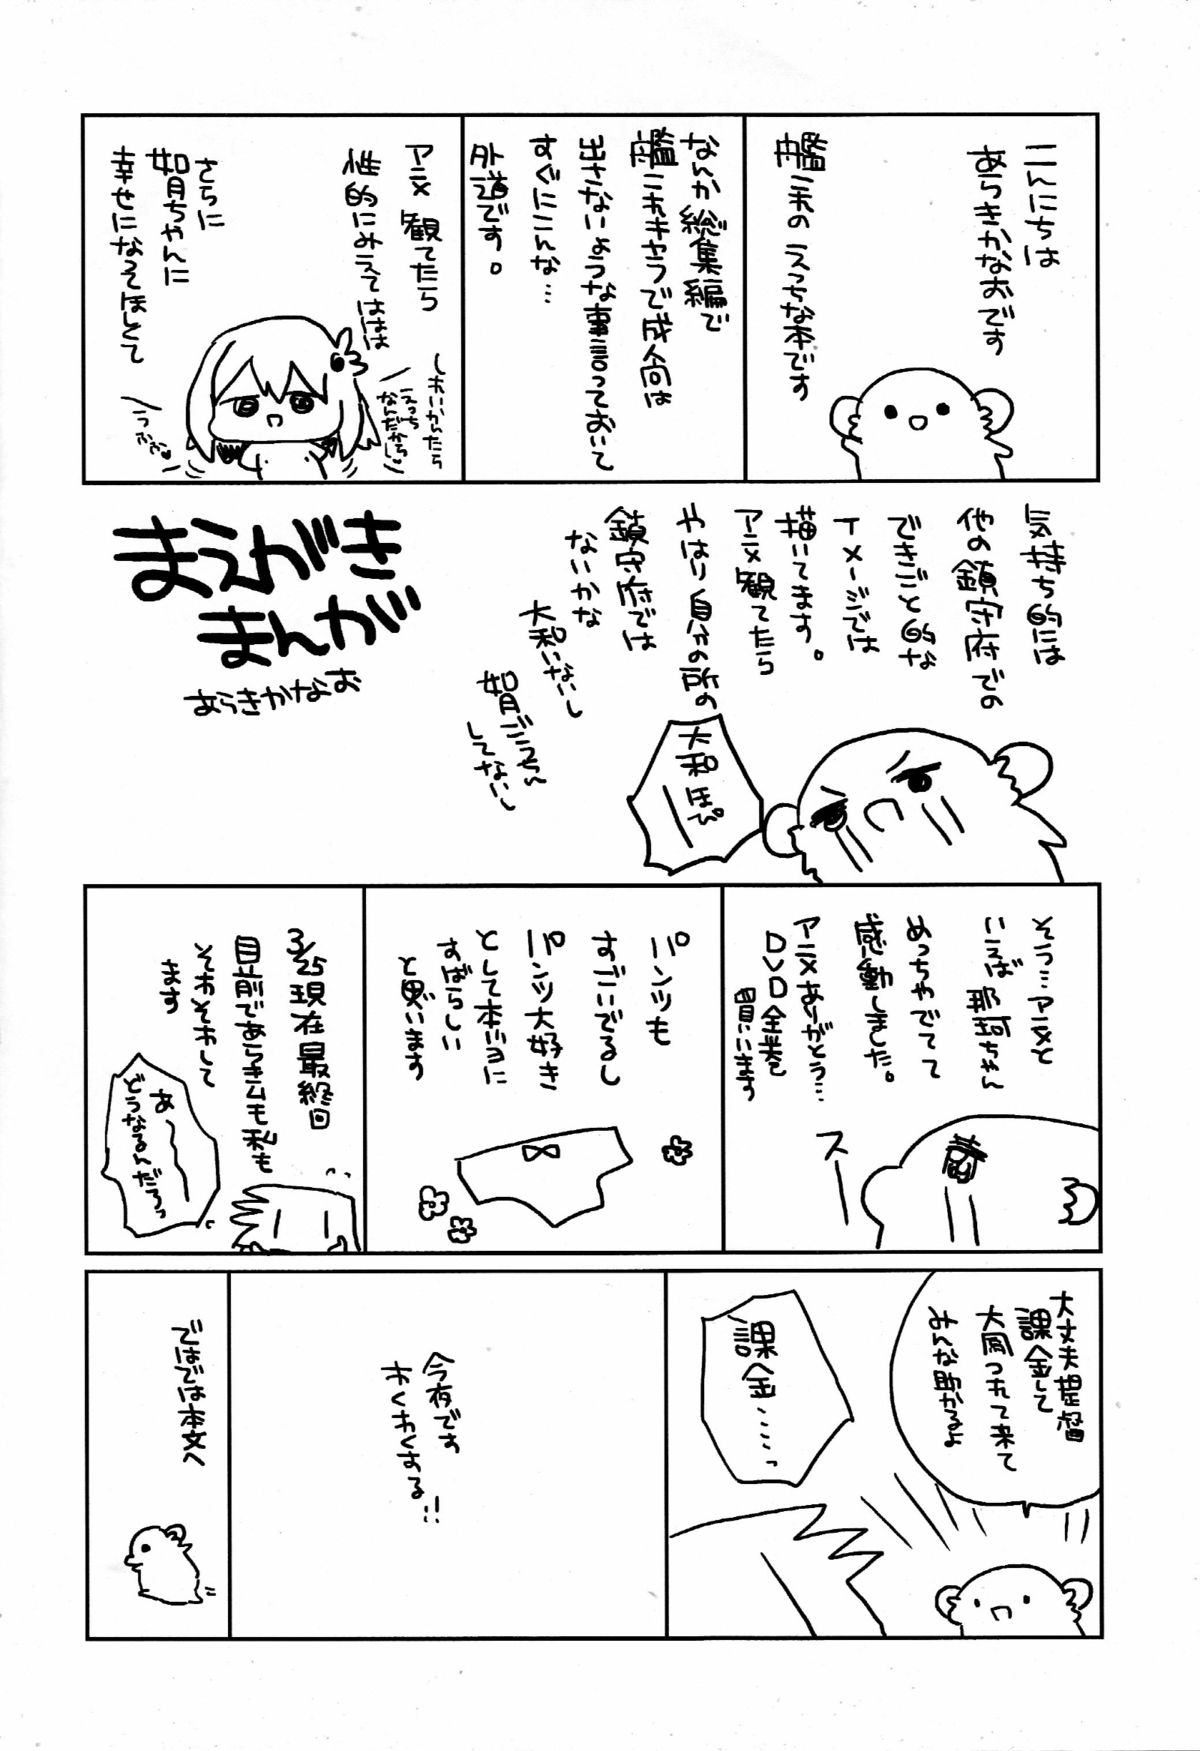 こんにちは
あらきかなおです
艦これの えっちな本です
なんか総集編で
艦これキャラで成人向は
出さないような事言っておいて
すぐにこんな…
外道です。
アニメ 観てたら
性的にみえてはは
さらに
如月ちゃんに
幸せになってほしくて
しれいかんたら
えっち
なんだから♡
うふふ♡
まえがき
まんが
あらきかなお
気持ち的には
他の鎮守府での
できごと的な
イメージでは
描いてます。
アニメ観てたら
やはり自分の所の
鎮守府では
ないかな
大和いないし
如月ごうちん
してないし
大和ほぴ
そう…アニメと
いえば 那珂ちゃん
めっちゃでてて
感動しました。
アニメありがとう…
DVD全巻
買います
スー
パンツも
すごいでるし
パンツ大好き
として本当に
すばらしい
と思います
3/25現在 最終回
目前であらきムも私も
そわそわして
ます
あ〜〜
どうなるんだろっ
大丈夫提督
課金して
大鳳つれて来て
みんな助かるよ
課金……っ
今夜です
わくわくする!!
ではでは本文へ